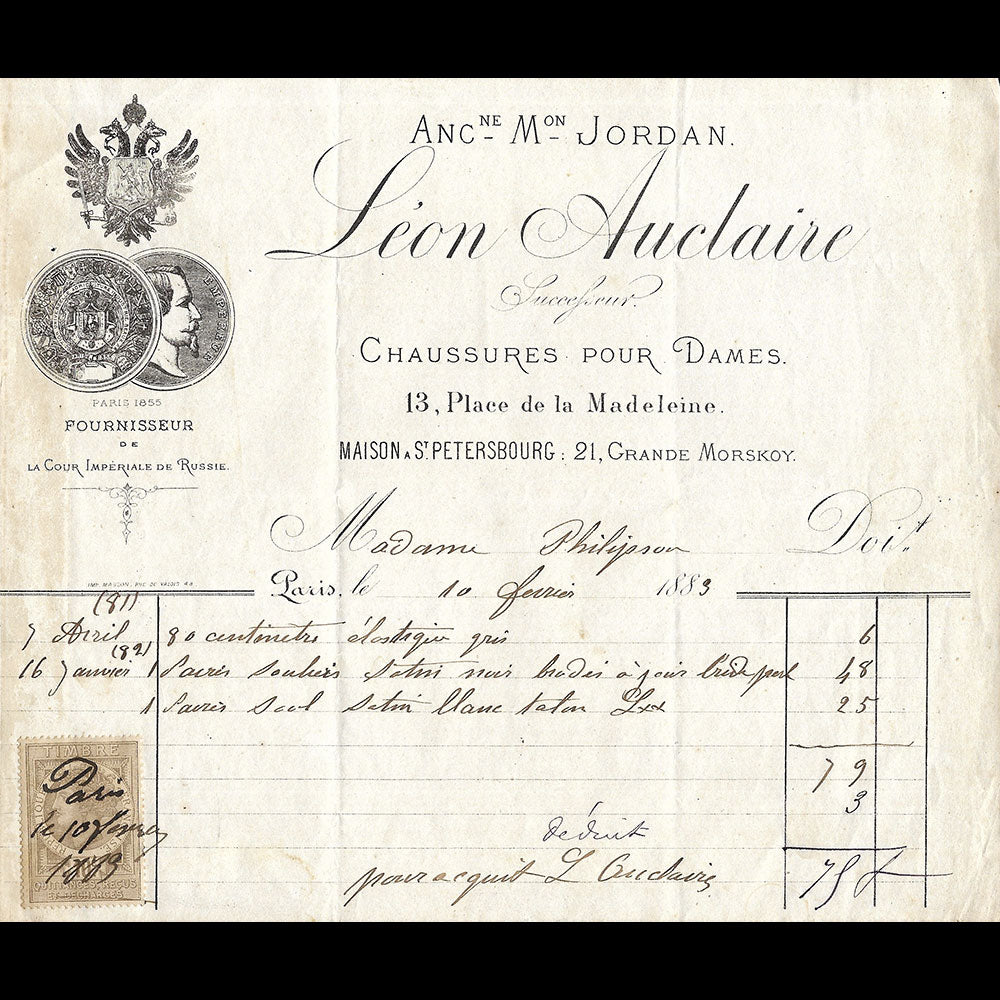 ANCNE MON JORDAN.
Léon Auclaire
Successeur.
CHAUSSURES POUR DAMES.
13, Place de la Madeleine.
MAISON A ST. PETERSBOURG : 21, GRANDE MORSKOY.
EMPEREUR
PARIS 1855
FOURNISSEUR
DE
LA COUR IMPÉRIALE DE RUSSIE.
Madame Philipson Doit
IMP. MASSON, RUE DE VALOIS
Paris, le 10 fevrier 1883
(81)
7 Avril 80 centimetre élastique gris 6
(82)
16 Janvier 1 Paires souliers Satin noir brodés à jour 48
1 Paires Satin blanc talon Lxx 25
79
3
déduit
pour acquit L Auclaire 75 f
TIMBRE
Paris
le 10 fevrier
1883
QUITTANCES, REÇUS
ET DÉCHARGES